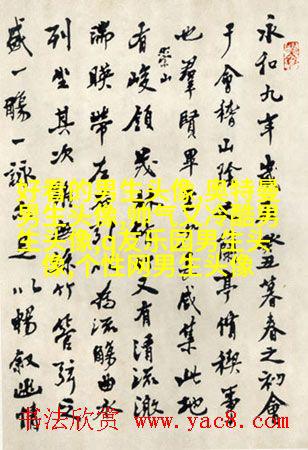 永和九年歲癸丑暮春之初會
于會稽山陰亭脩禊事
也羣賢畢咸集此地
有崇山峻領茂林又有清流激
湍暎帶左右為流觴曲水
列坐其次竹管弦之
盛一觴一詠足以暢敘幽情
好看的男生头像,奥特曼
男生头像,帅气又冷酷男
生头像,qq友乐园男生头
像,个性网男生头像
书法欣赏 www.yac8.com